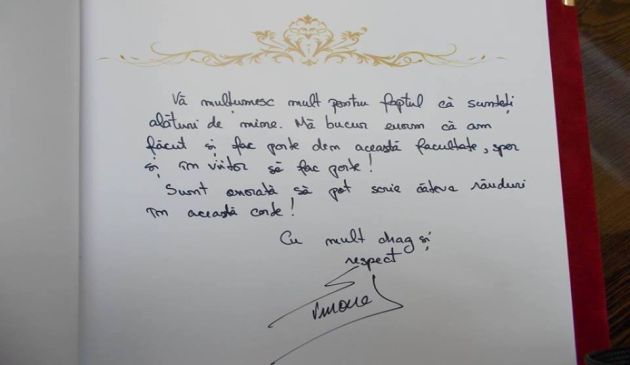 Vă mulțumesc mult pentru faptul că sunteți
alături de mine. Mă bucur enorm că am
făcut și fac parte din această facultate, sper
și în viitor să fac parte!
Sunt onorată să pot scrie câteva rânduri
în această carte!
Cu mult drag și
respect